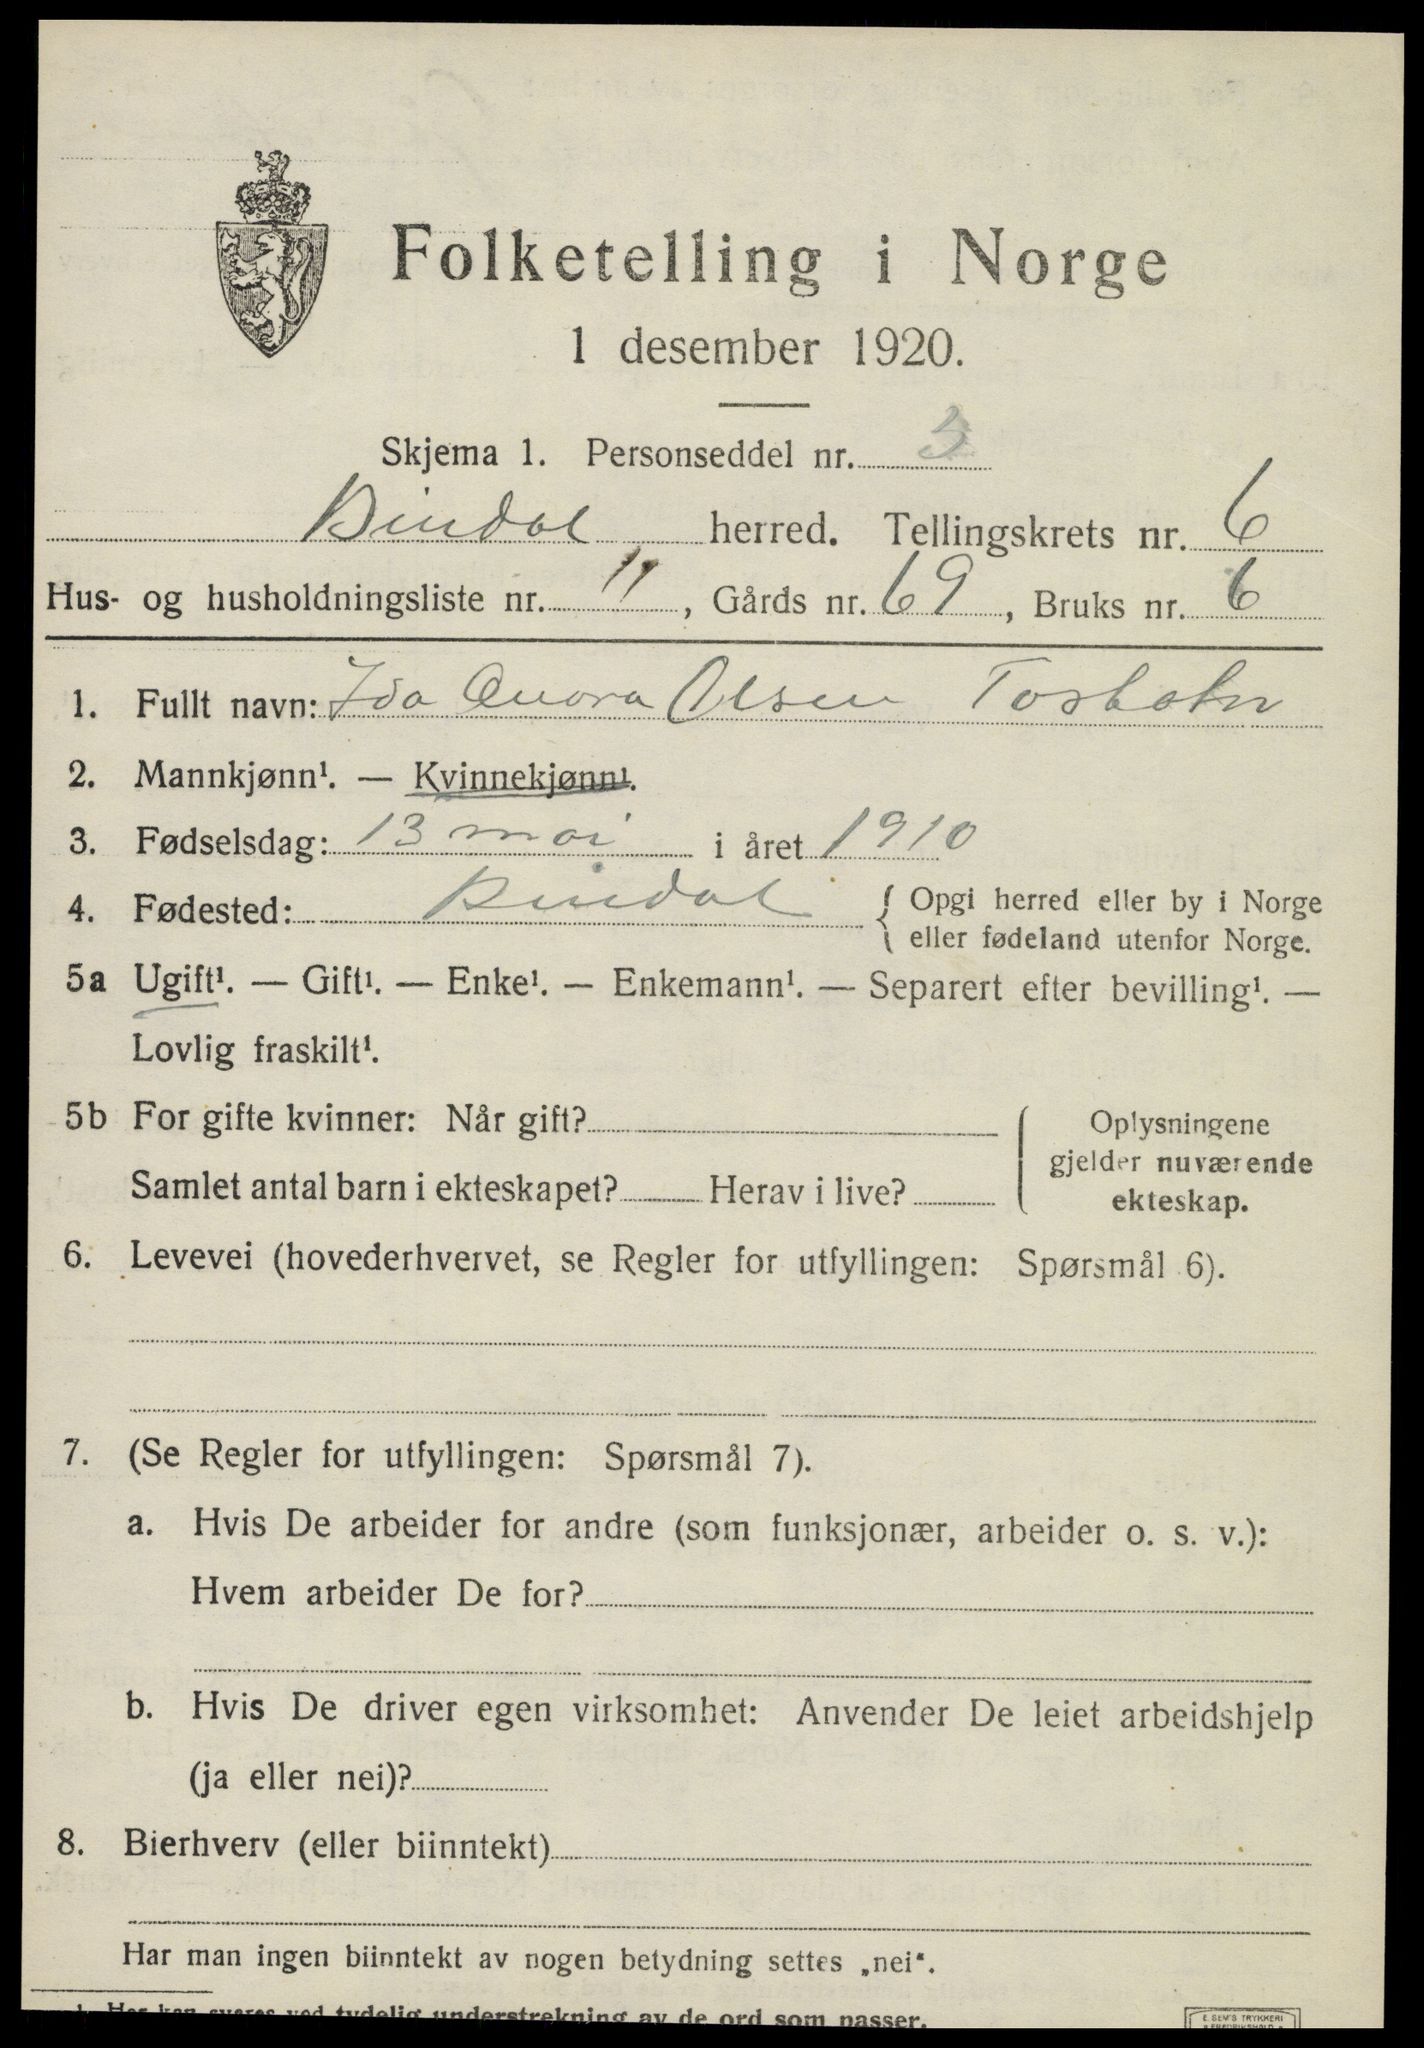 Folketelling i Norge
1 desember 1920.
Skjema 1. Personseddel nr. 3
Bindal herred. Tellingskrets nr. 6
Hus- og husholdningsliste nr. 11, Gårds nr. 69, Bruks nr. 6
1. Fullt navn: Ida Olsen
2. Mannkjønn¹. — Kvinnekjønn¹.
3. Fødselsdag: 13 mai i året 1910
4. Fødested: Bindal { Opgi herred eller by i Norge
eller fødeland utenfor Norge.
5a Ugift¹. — Gift¹. — Enke¹. — Enkemann¹. — Separert efter bevilling¹. —
Lovlig fraskilt¹.
5b For gifte kvinner: Når gift?
Samlet antal barn i ekteskapet? Herav i live?
Oplysningene
gjelder nuværende
ekteskap.
6. Levevei (hovederhvervet, se Regler for utfyllingen: Spørsmål 6).
7. (Se Regler for utfyllingen: Spørsmål 7).
a. Hvis De arbeider for andre (som funksjonær, arbeider o. s. v.):
Hvem arbeider De for?
b. Hvis De driver egen virksomhet: Anvender De leiet arbeidshjelp
(ja eller nei)?
8. Bierhverv (eller biinntekt)
Har man ingen biinntekt av nogen betydning settes „nei“.
¹ Her kan svares ved tydelig understrekning av de ord som passer.
E. SEM'S TRYKKERI
FREDRIKSHALD